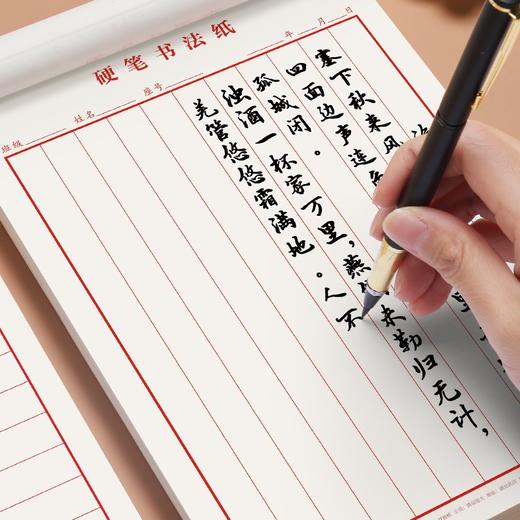 硬笔书法纸
班级 姓名 座号 年 月 日
塞下秋来风
四面边声连角
孤城闭。
浊酒一杯家万里，燕然未勒归无计，
羌管悠悠霜满地。人不